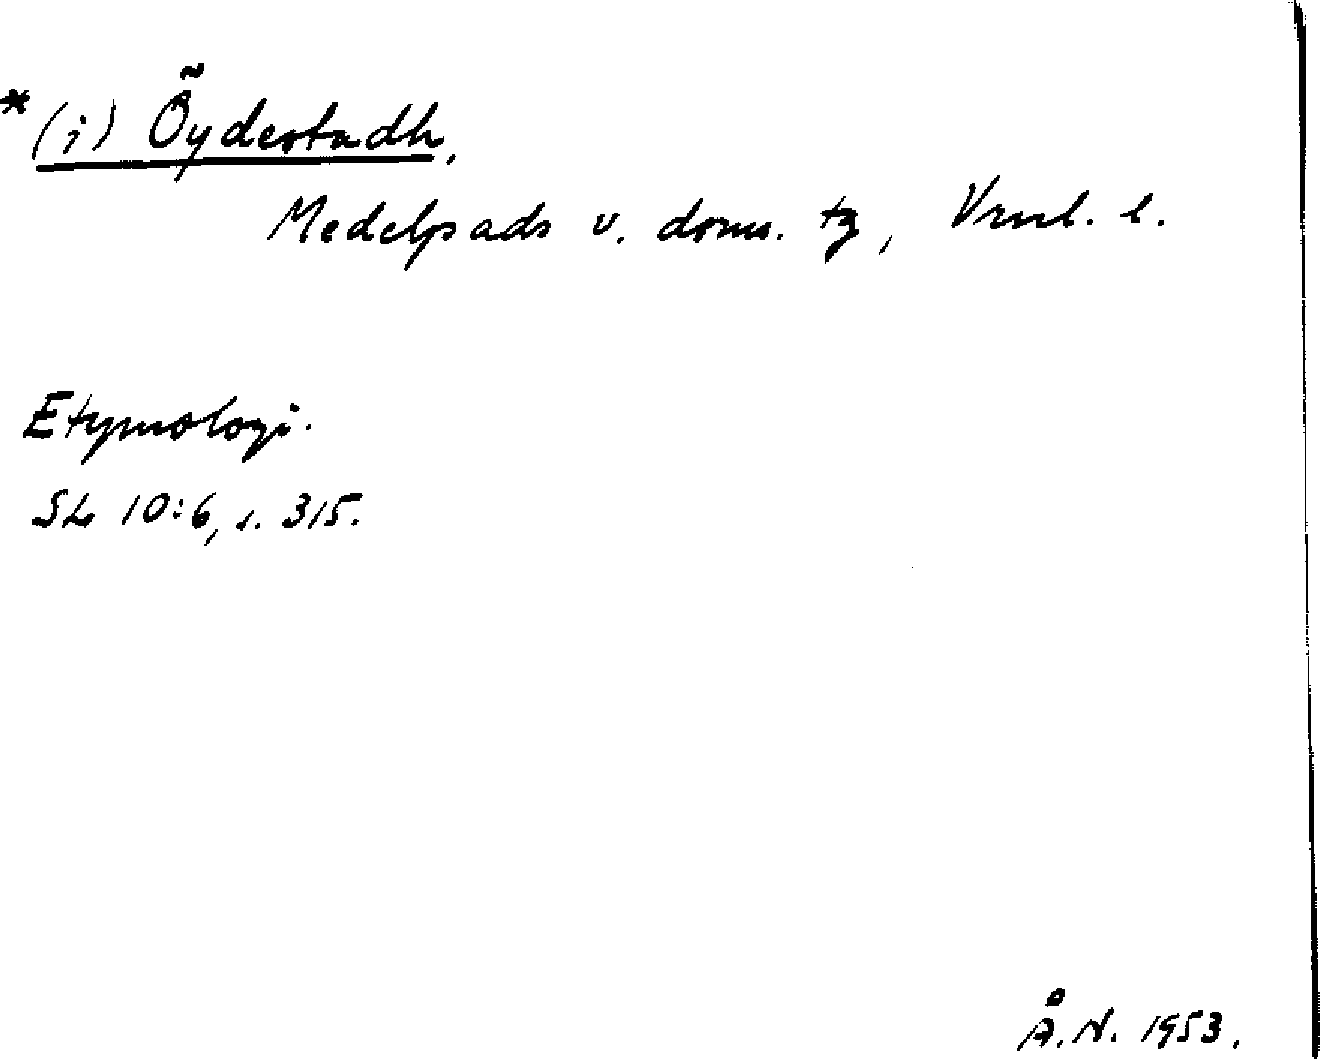 *(i) Öydestadh,
Medelpads v. doms. tg, Vrnl. l.
Etymologi.
SL 10:6, s. 315.
Å.N. 1953.